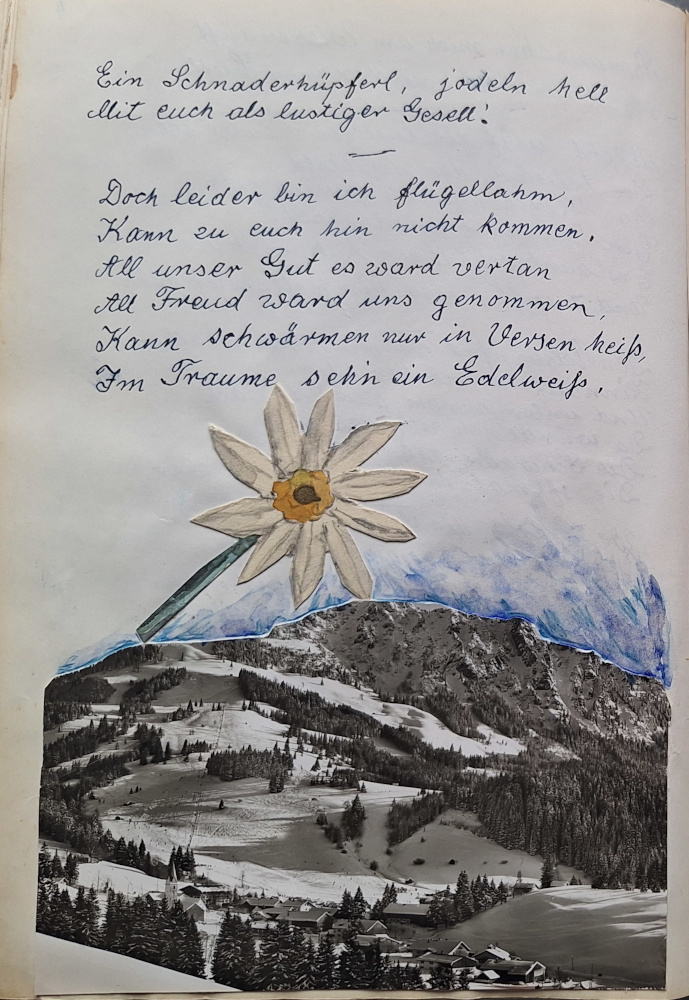 Ein Schnaderhüpferl, jodeln hell
Mit euch als lustiger Gesell!
Doch leider bin ich flügellahm,
Kann zu euch hin nicht kommen.
All unser Gut es ward vertan
All Freud ward uns genommen,
Kann schwärmen nur in Versen heiß,
Im Traume sehn ein Edelweiß.